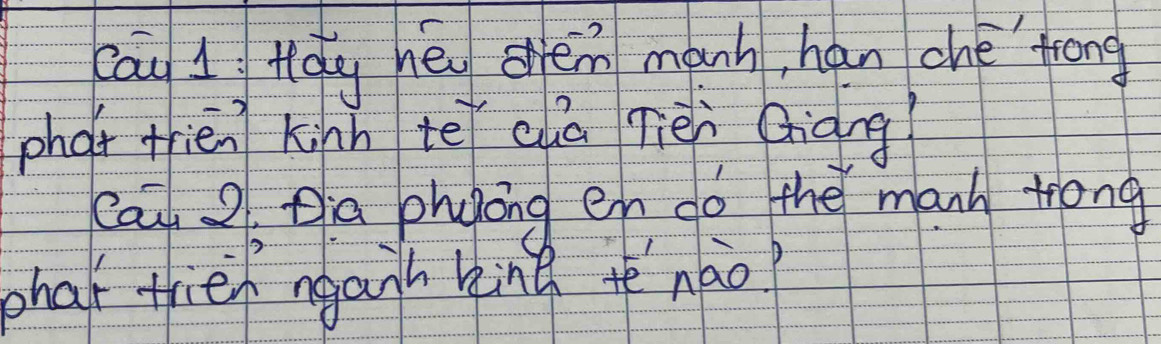 Câu 1: Hãy nêu điểm mạnh, hạn chế trong
phát triển kinh tế của Tiền Giang?
Câu 2: Địa phương em có thế mạnh trong
phát triển ngành kinh tế nào?